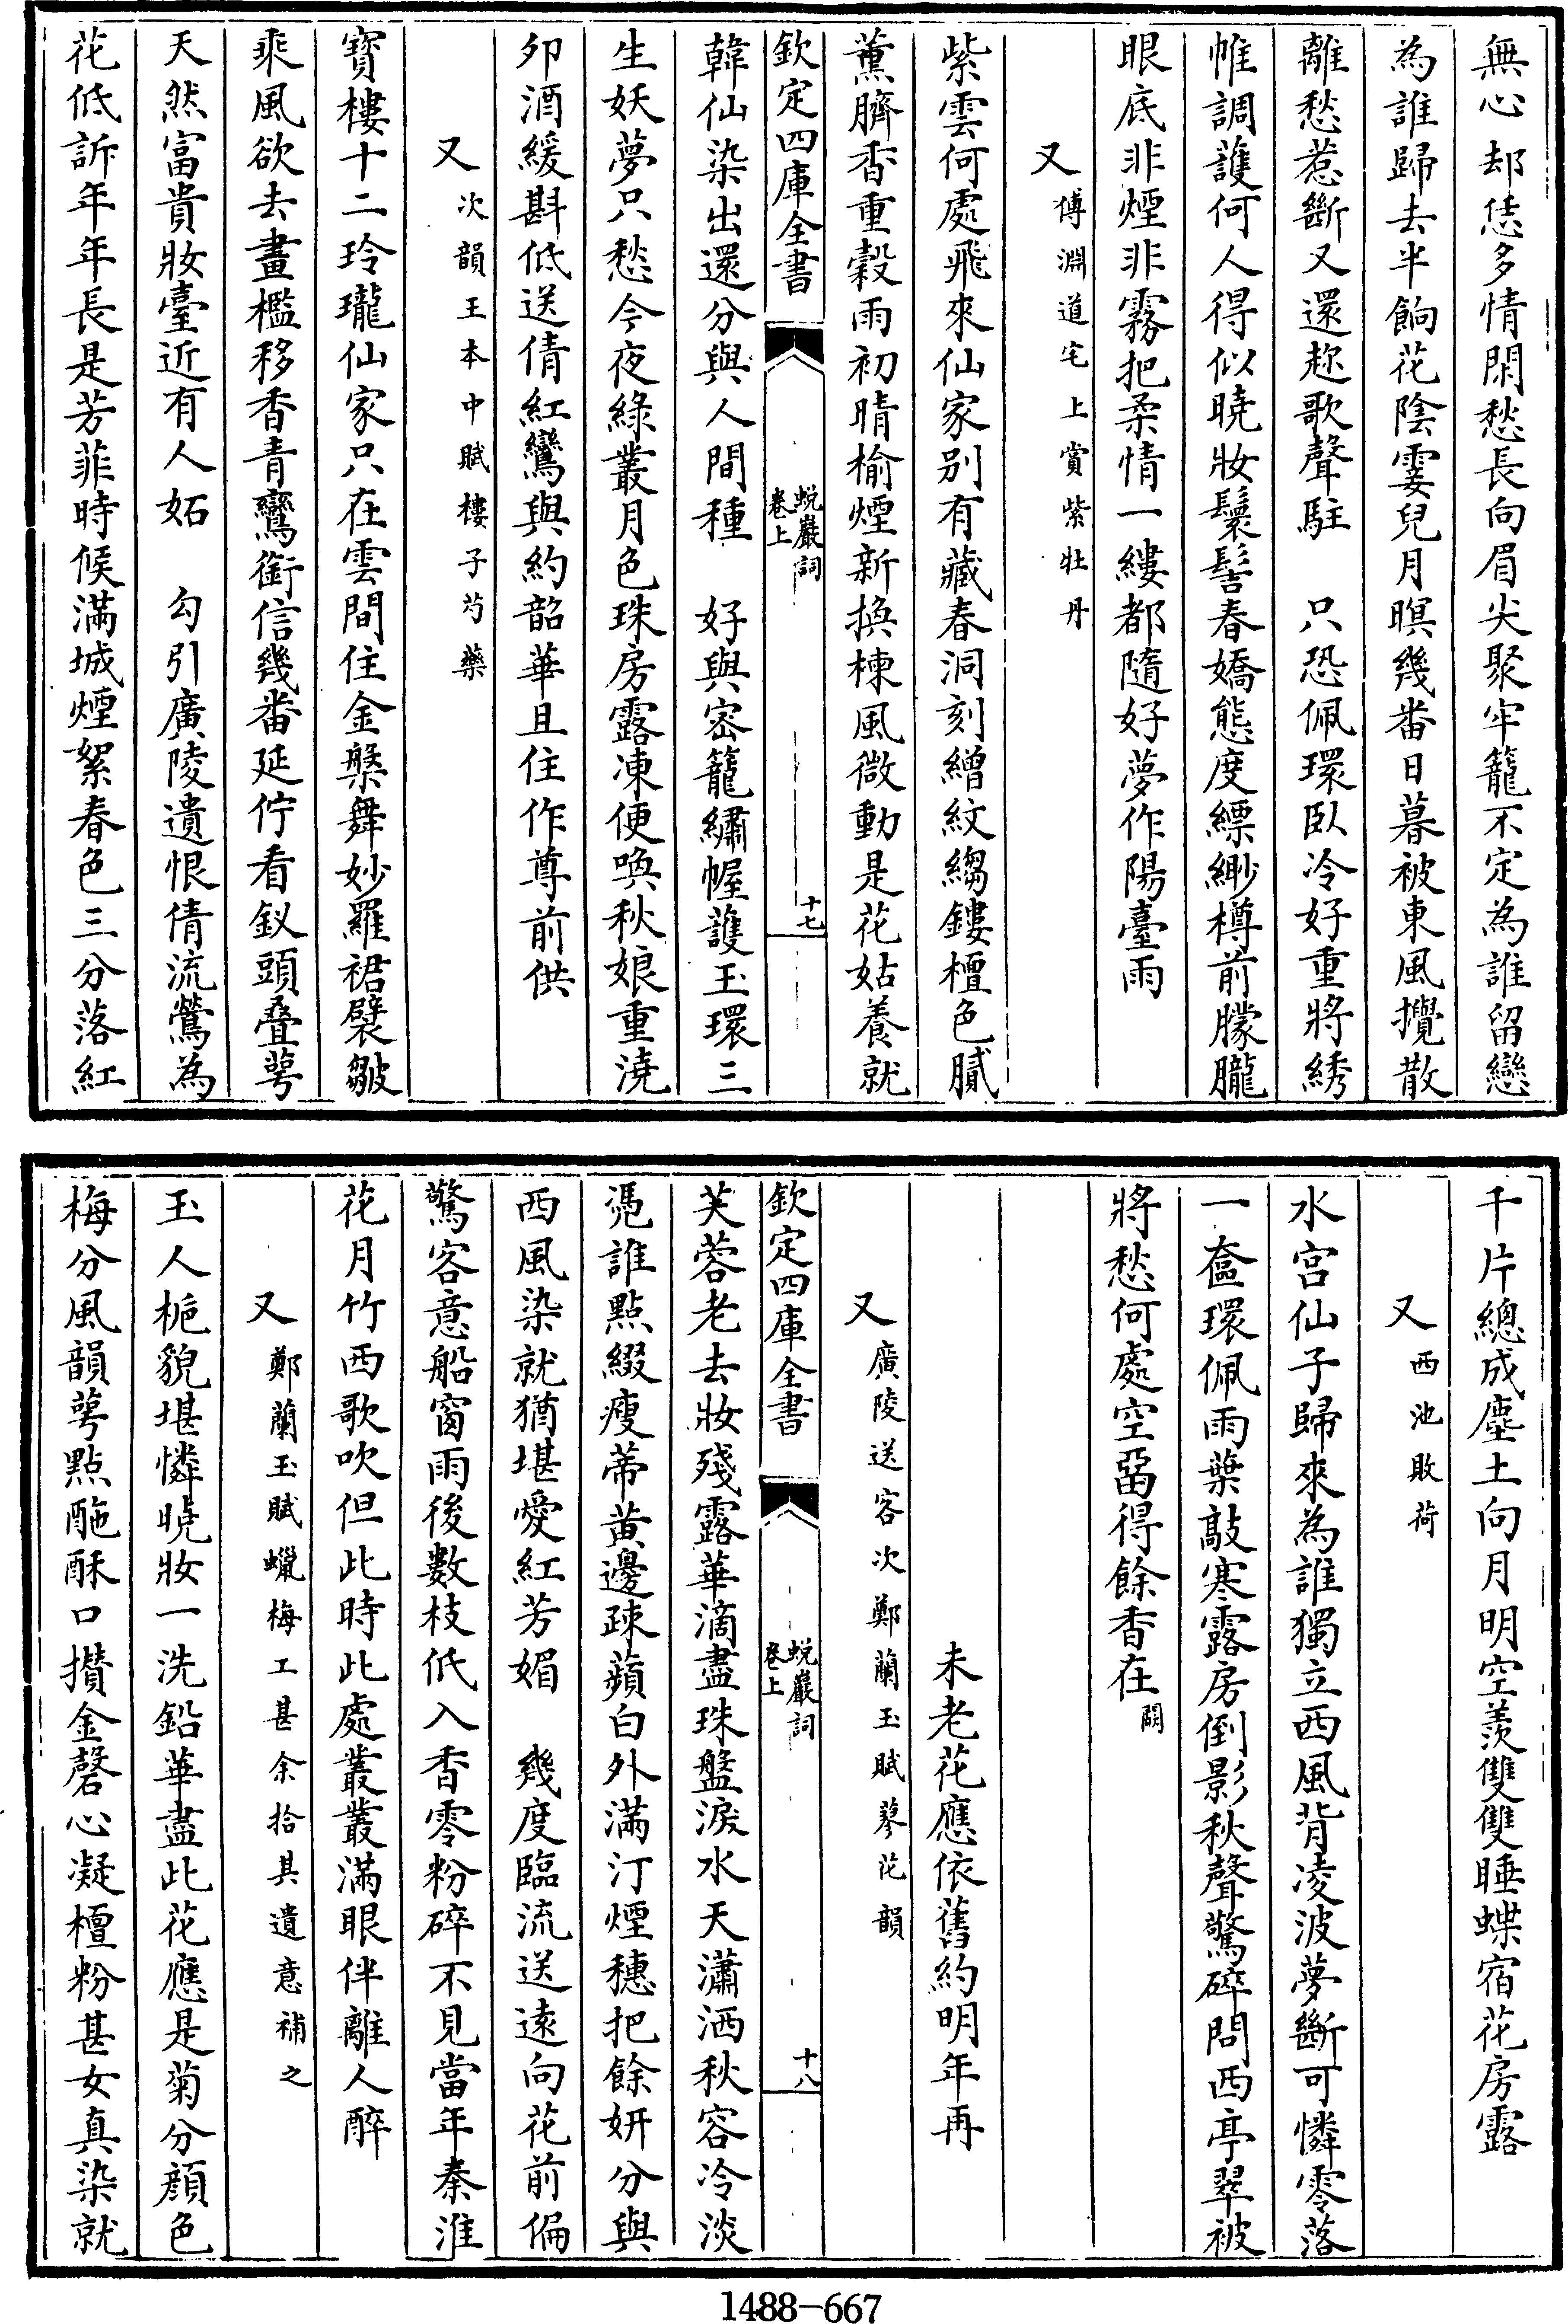 無心却恁多情閑愁長向眉尖聚牢籠不定為誰留戀
為誰歸去半餉花陰霎兒月暝幾番日暮被東風攪散
離愁惹斷又還趂歌聲駐　只恐佩環臥冷好重將綉
帷調護何人得似曉妝鬟髻春嬌態度縹緲樽前朦朧
眼底非煙非霧把柔情一縷都隨好夢作陽臺雨
又傅淵道宅上賞紫牡丹
紫雲何處飛來仙家别有藏春洞刻繒紋縐鏤檀色膩
薰臍香重穀雨初晴榆煙新換楝風微動是花姑養就
欽定四庫全書
蛻巖詞
卷上
十七
韓仙染出還分與人間種　好與宻籠繡幄護玉環三
生妖夢只愁今夜綠叢月色珠房露凍便喚秋娘重澆
夘酒緩斟低送倩紅鸞與約韶華且住作尊前供
又次韻王本中賦樓子芍藥
寳樓十二玲瓏仙家只在雲間住金槃舞妙羅裙襞皺
乘風欲去畫檻移香青鸞銜信幾番延佇看釵頭疊萼
天然富貴妝臺近有人妬　勾引廣陵遺恨倩流鶯為
花低訴年年長是芳菲時候滿城煙絮春色三分落紅
千片總成塵土向月明空羨雙雙睡蝶宿花房露
又西池敗荷
水宫仙子歸來為誰獨立西風背凌波夢斷可憐零落
一奩環佩雨葉敲寒露房倒影秋聲驚碎問西亭翠被
將愁何處空畱得餘香在闕
未老花應依舊約明年再
又廣陵送客次鄭蘭玉賦蓼花韻
欽定四庫全書
蛻巖詞
卷上
十八
芙蓉老去妝殘露華滴盡珠盤淚水天瀟洒秋容冷淡
憑誰點綴瘦葦黄邊疎蘋白外滿汀煙穗把餘妍分與
西風染就猶堪愛紅芳媚　幾度臨流送遠向花前偏
驚客意船窗雨後數枝低入香零粉碎不見當年秦淮
花月竹西歌吹但此時此處叢叢滿眼伴離人醉
又鄭蘭玉賦蠟梅工甚余拾其遺意補之
玉人梔貌堪憐曉妝一洗鉛華盡此花應是菊分顔色
梅分風韻萼點酏酥口攢金磬心凝檀粉甚女真染就
1488-667